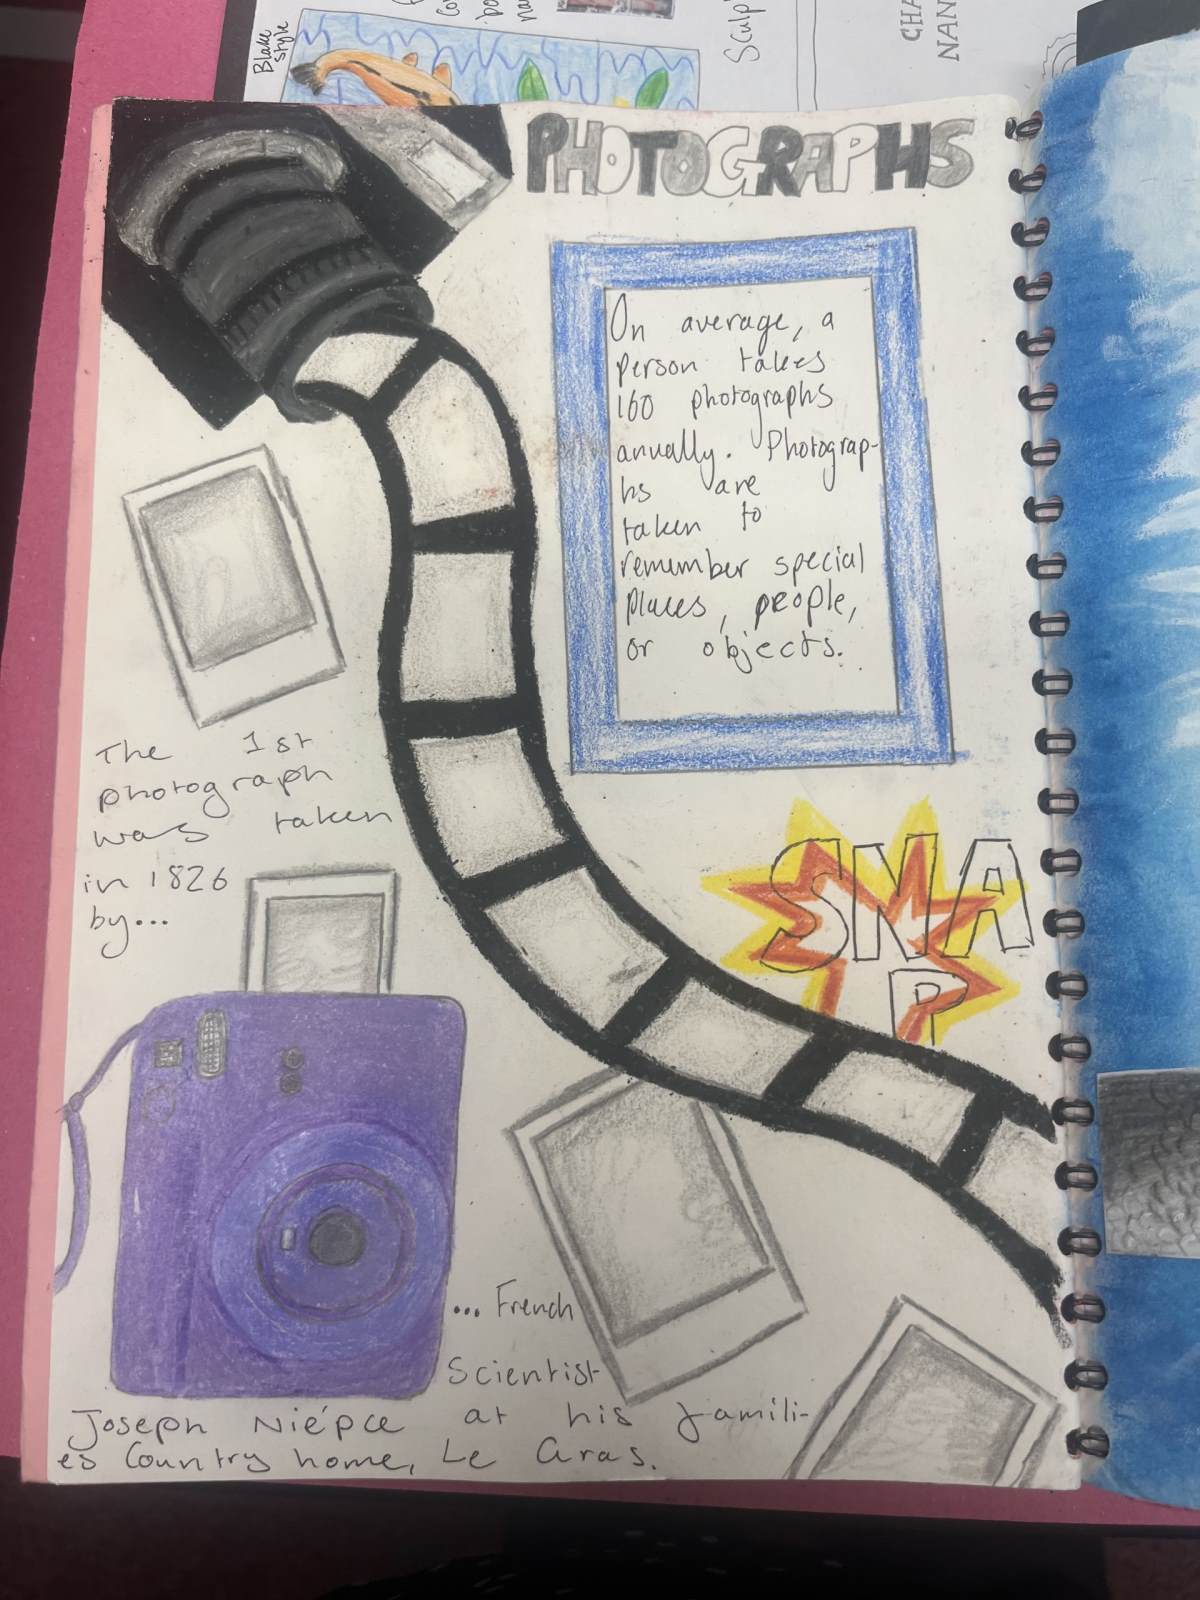 Blake
style
Sculp
CHA
NAN
PHOTOGRAPHS
On average, a
person takes
160 photographs
anually. Photograp-
hs are
taken to
remember special
places, people,
or objects.
The 1st
photograph
was taken
in 1826
by...
SNA
P
... French
Scientist
Joseph Niépce at his famili-
es Country home, Le Gras.